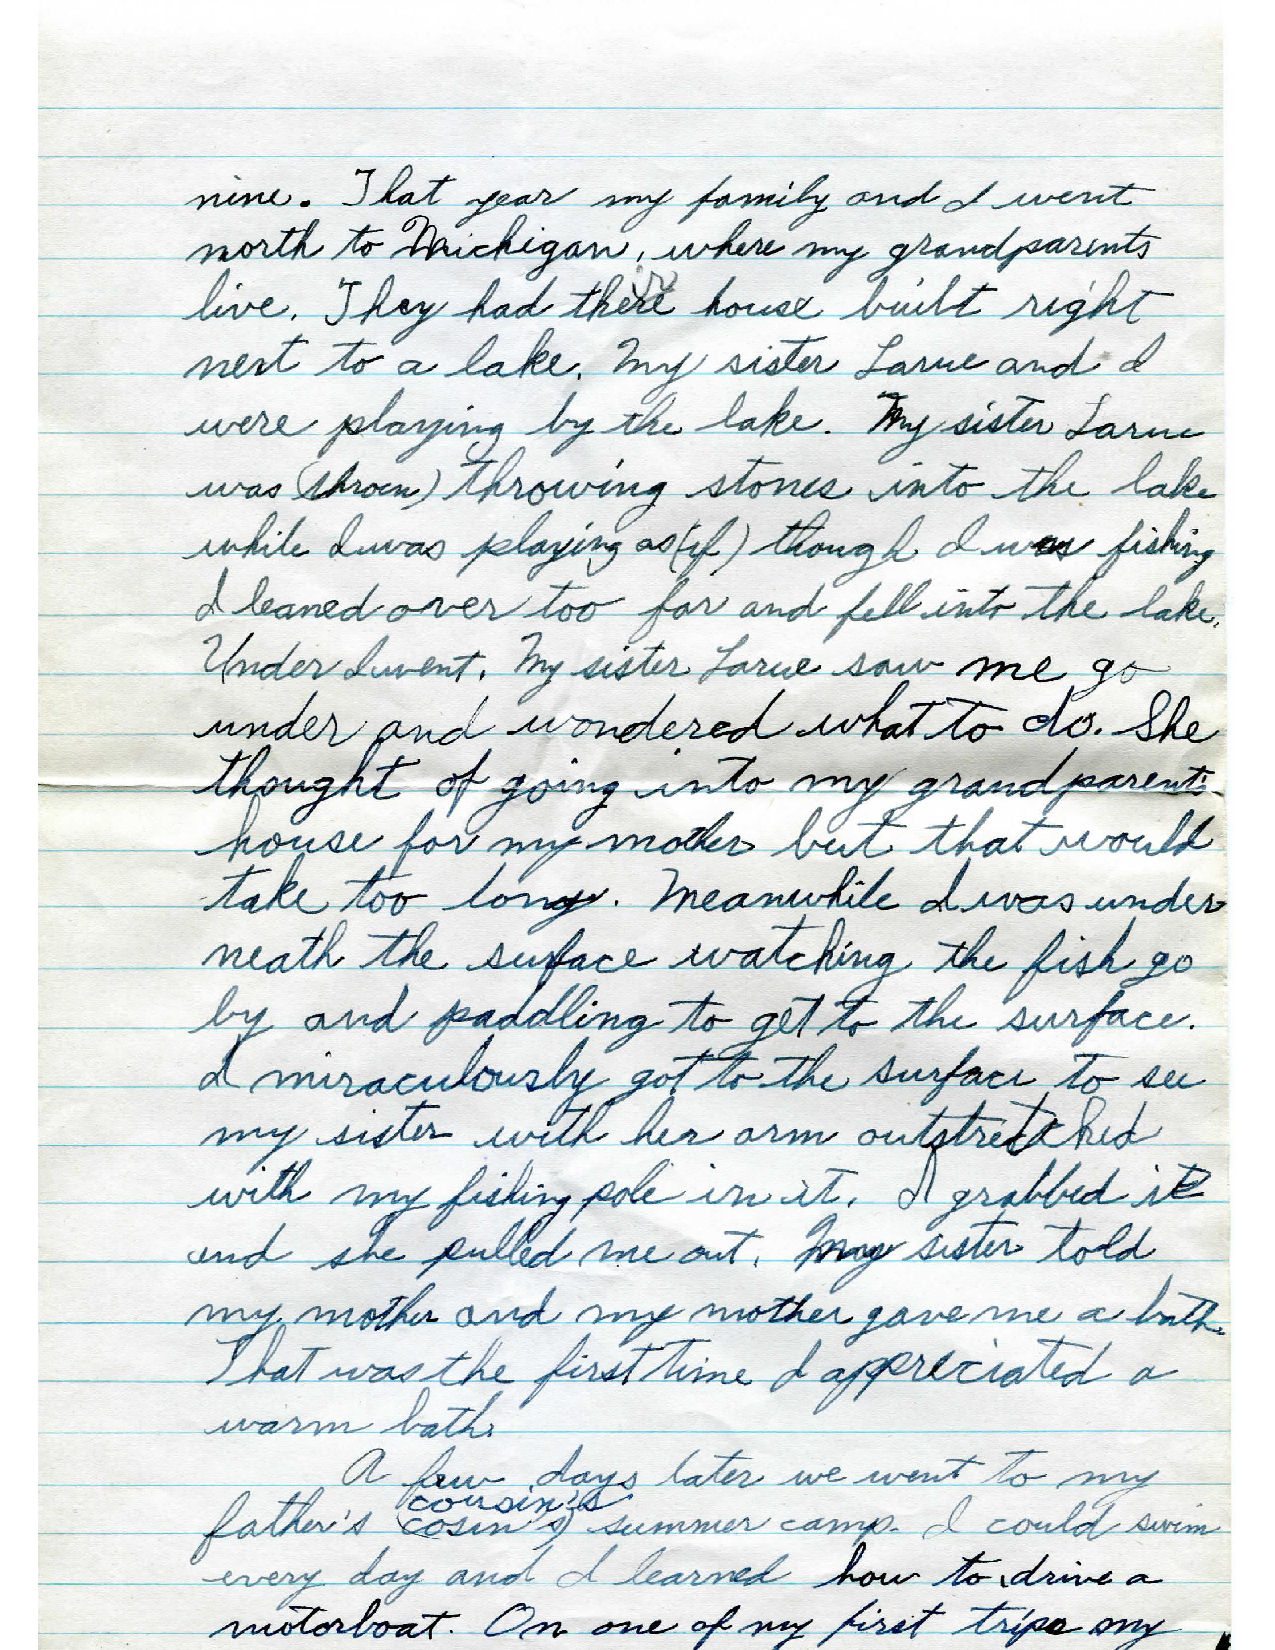 nine. That year my family and I went
north to Michigan, where my grandparents
live. They had there house built right
ir
next to a lake. My sister Larue and I
were playing by the lake. My sister Larue
was (throen) throwing stones into the lake
while I was playing as (if) though I was fishing
I leaned over too far and fell into the lake.
Under I went. My sister Larue saw me go
under and wondered what to do. She
thought of going into my grandparents
house for my mother but that would
take too long. Meanwhile I was under
neath the surface watching the fish go
by and paddling to get to the surface.
I miraculously got to the surface to see
my sister with her arm outstretched
with my fishing pole in it. I grabbed it
and she pulled me out. My sister told
my mother and my mother gave me a bath.
That was the first time I appreciated a
warm bath.
A few days later we went to my
cousin's
father's (cosin's) summer camp. I could swim
every day and I learned how to drive a
motorboat. On one of my first trips my